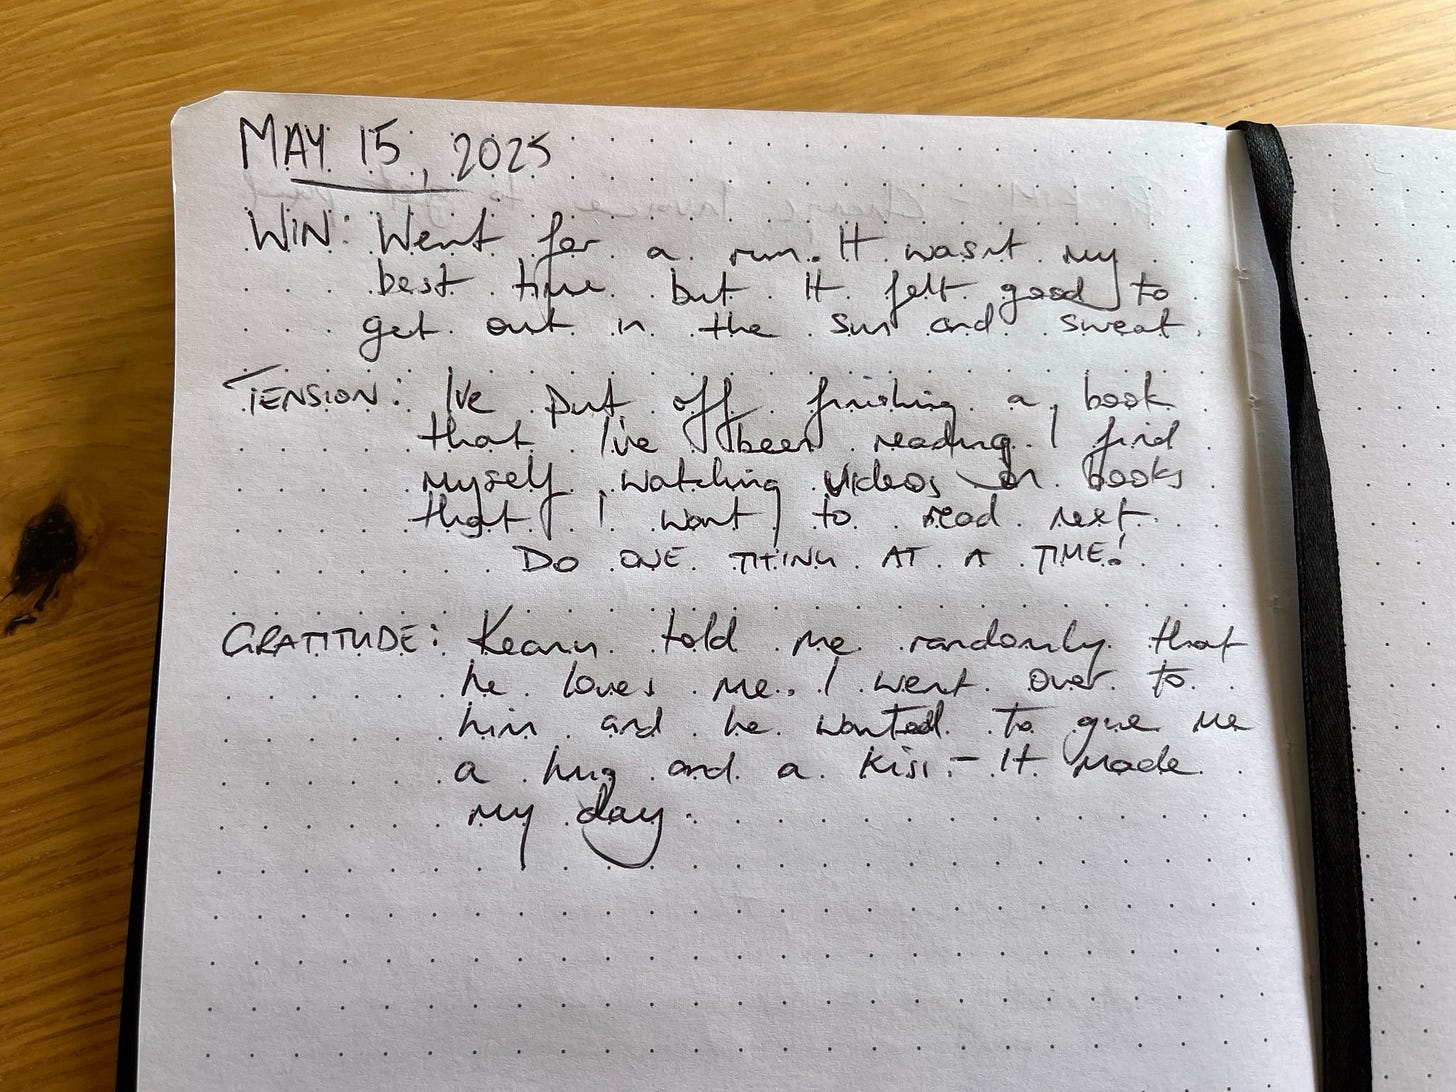 MAY 15, 2025
WIN: Went for a run. It wasn't my
best time but it felt good to
get out in the sun and sweat.
TENSION: I've put off finishing a book
that I've been reading. I find
myself watching videos on books
that I want to read next.
DO ONE THING AT A TIME!
GRATITUDE: told me randomly that
he loves me. I went over to
him and he wanted to give me
a hug and a kiss - It made
my day.